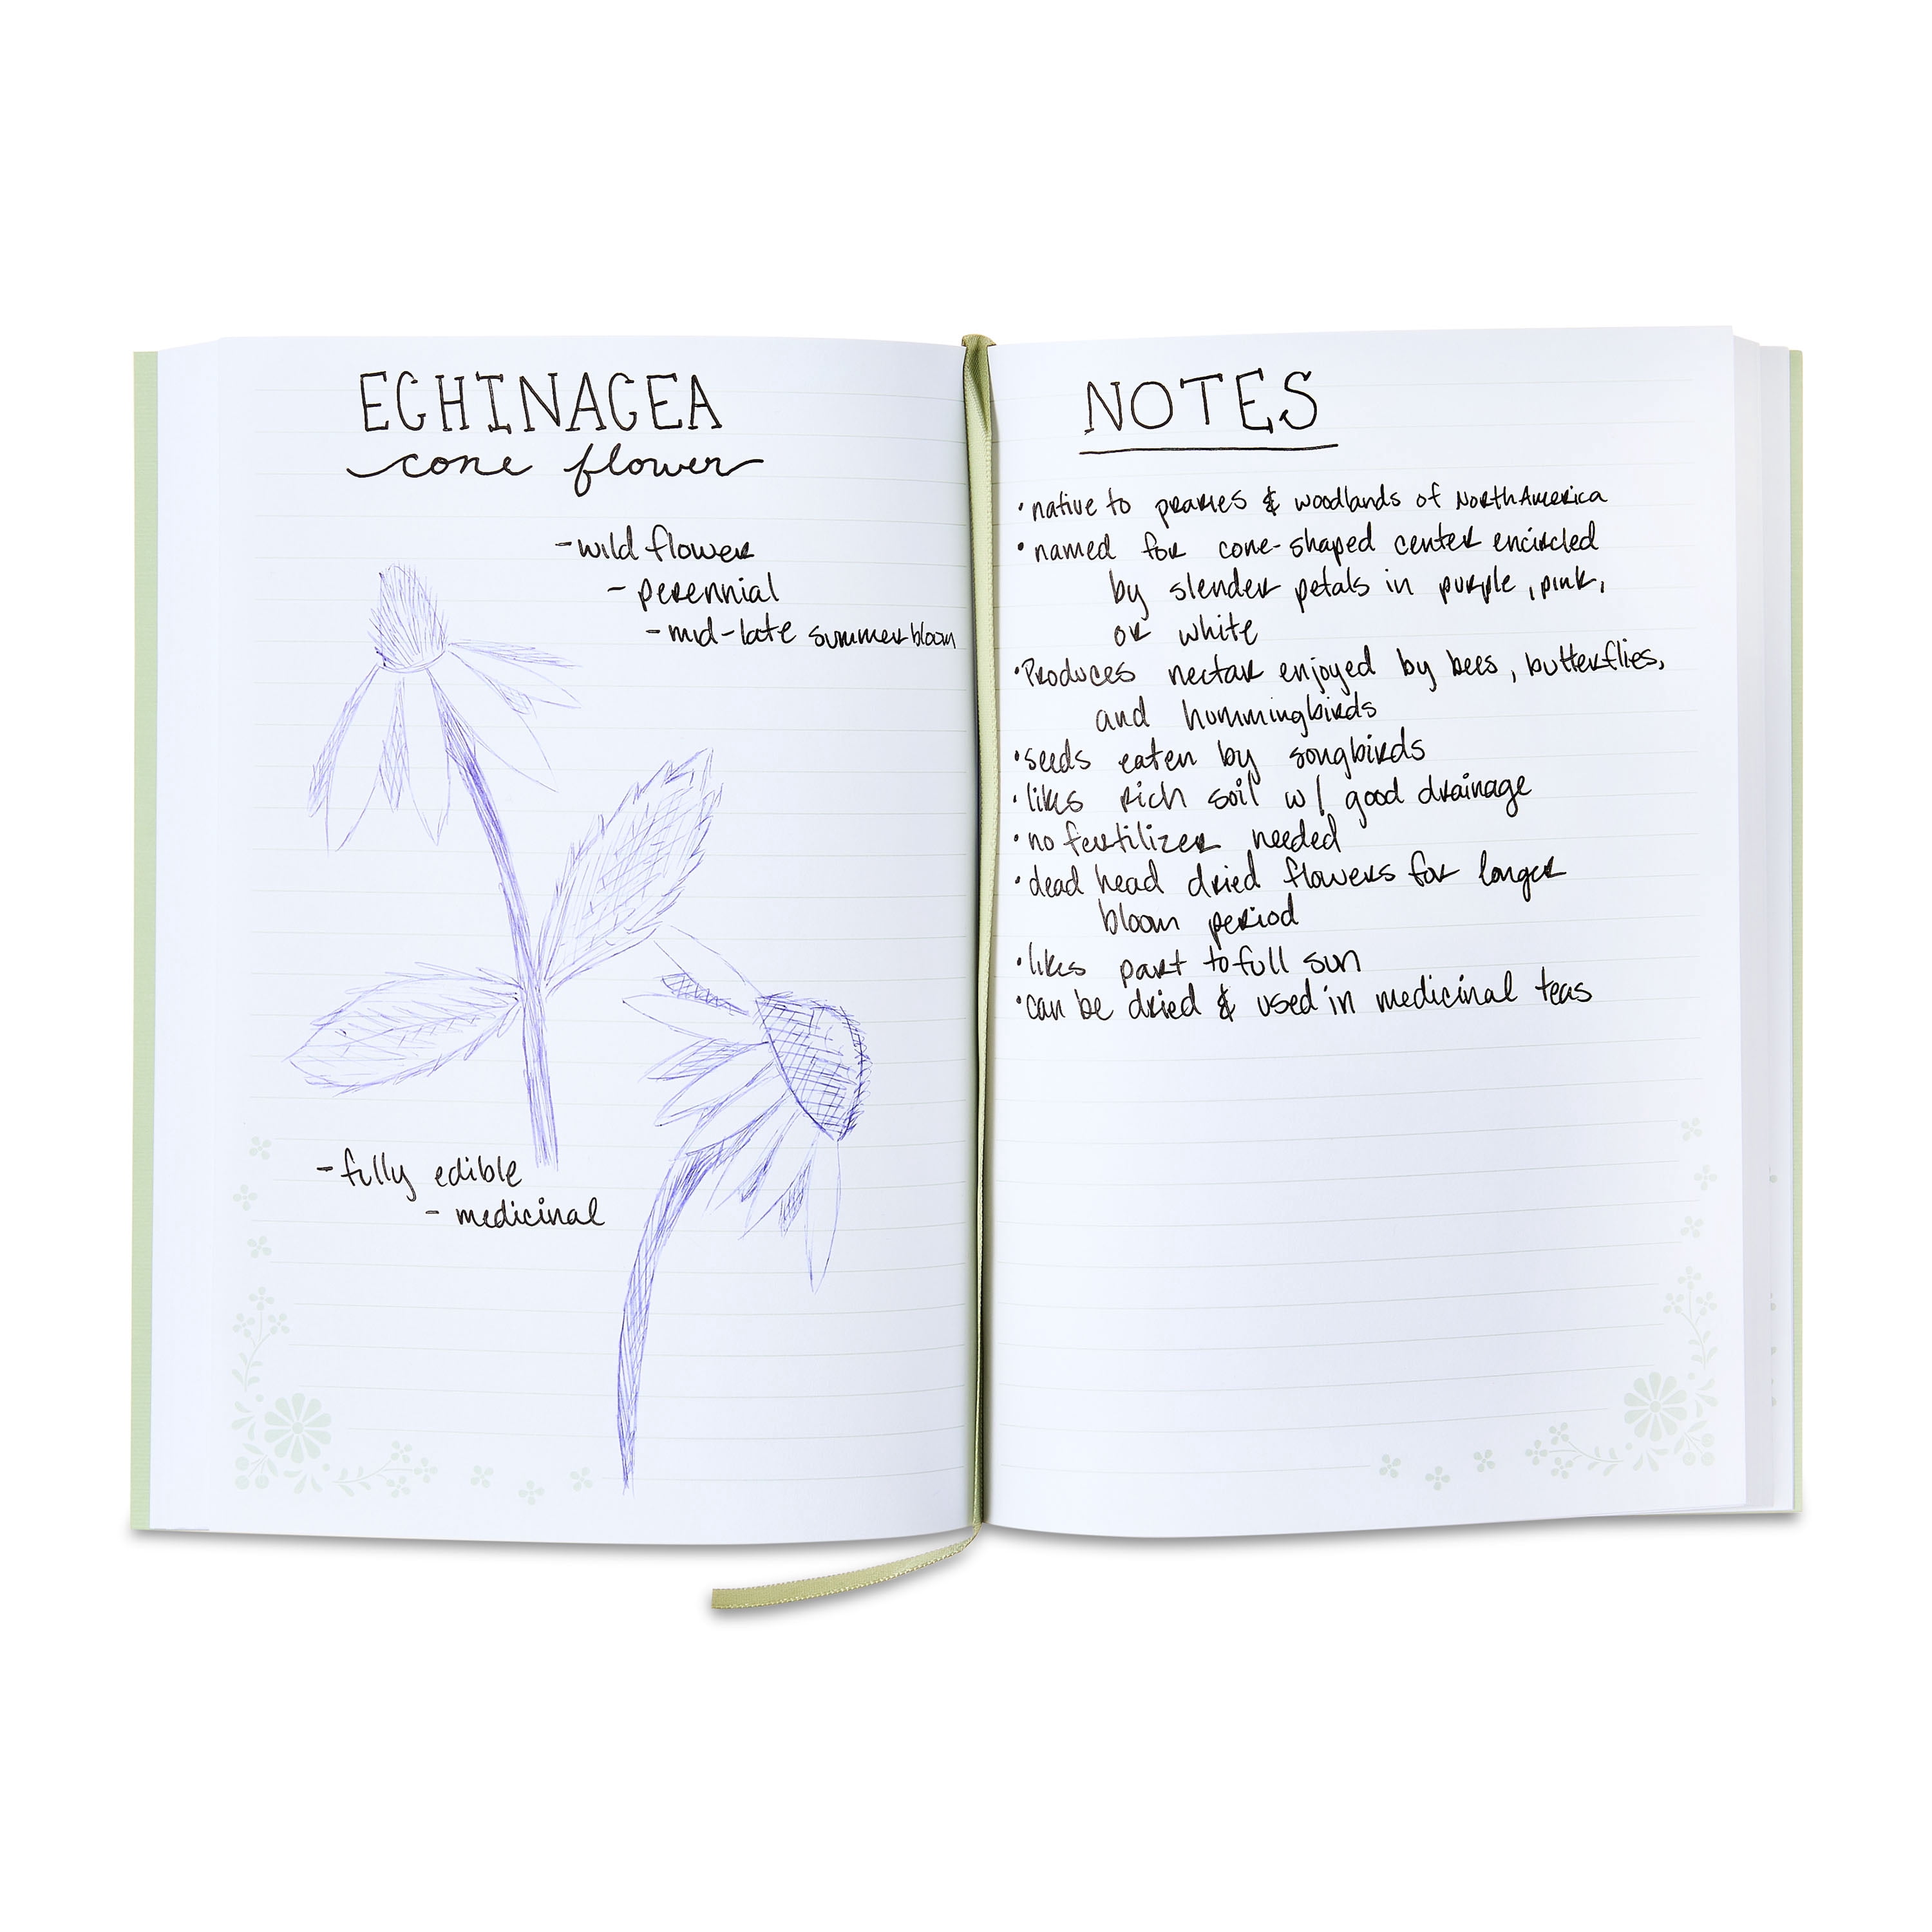 ECHINACEA
cone flower
-wild flower
- perennial
- mid-late summer bloom
-fully edible
- medicinal
NOTES
•native to praries & woodlands of North America
•named for cone-shaped center encircled
by slender petals in purple, pink,
or white
•Produces nectar enjoyed by bees, butterflies,
and hummingbirds
•seeds eaten by songbirds
•likes rich soil w/ good drainage
•no fertilizer needed
•dead head dried flowers for longer
bloom period
•likes part to full sun
•can be dried & used in medicinal teas